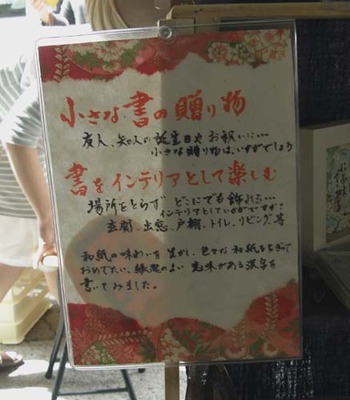 小さな書の贈り物
友人、知人の誕生日やお祝いに…
小さな贈り物は、いかがでしょう
書をインテリアとして楽しむ
場所をとらず どこにでも飾れる…
インテリアとしていかがですか?
玄関、出窓、戸棚、トイレ、リビング、等
和紙の味わいを生かし、色々な和紙をちぎって
おめでたい、縁起のよい 意味がある漢字を
書いてみました。